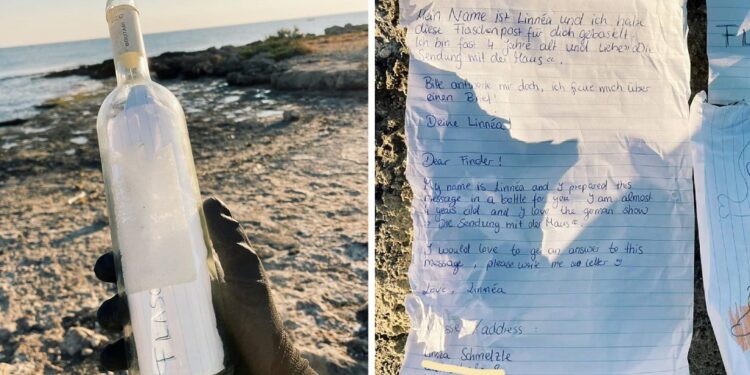 FLASC
Mein Name ist Linnéa und ich habe
diese Flaschenpost für dich gebastelt.
Ich bin fast 4 Jahre alt und liebe "Die
Sendung mit der Maus".
Bitte antworte mir doch, ich freue mich über
einen Brief!
Deine Linnéa
Dear Finder!
My name is Linnéa and I prepared this
message in a bottle for you. I am almost
4 years old and I love the german show
"Die Sendung mit der Maus"
I would love to get an answer to this
message, please write me a letter
Love, Linnéa
/address:
Linnéa Schmelzle
FL